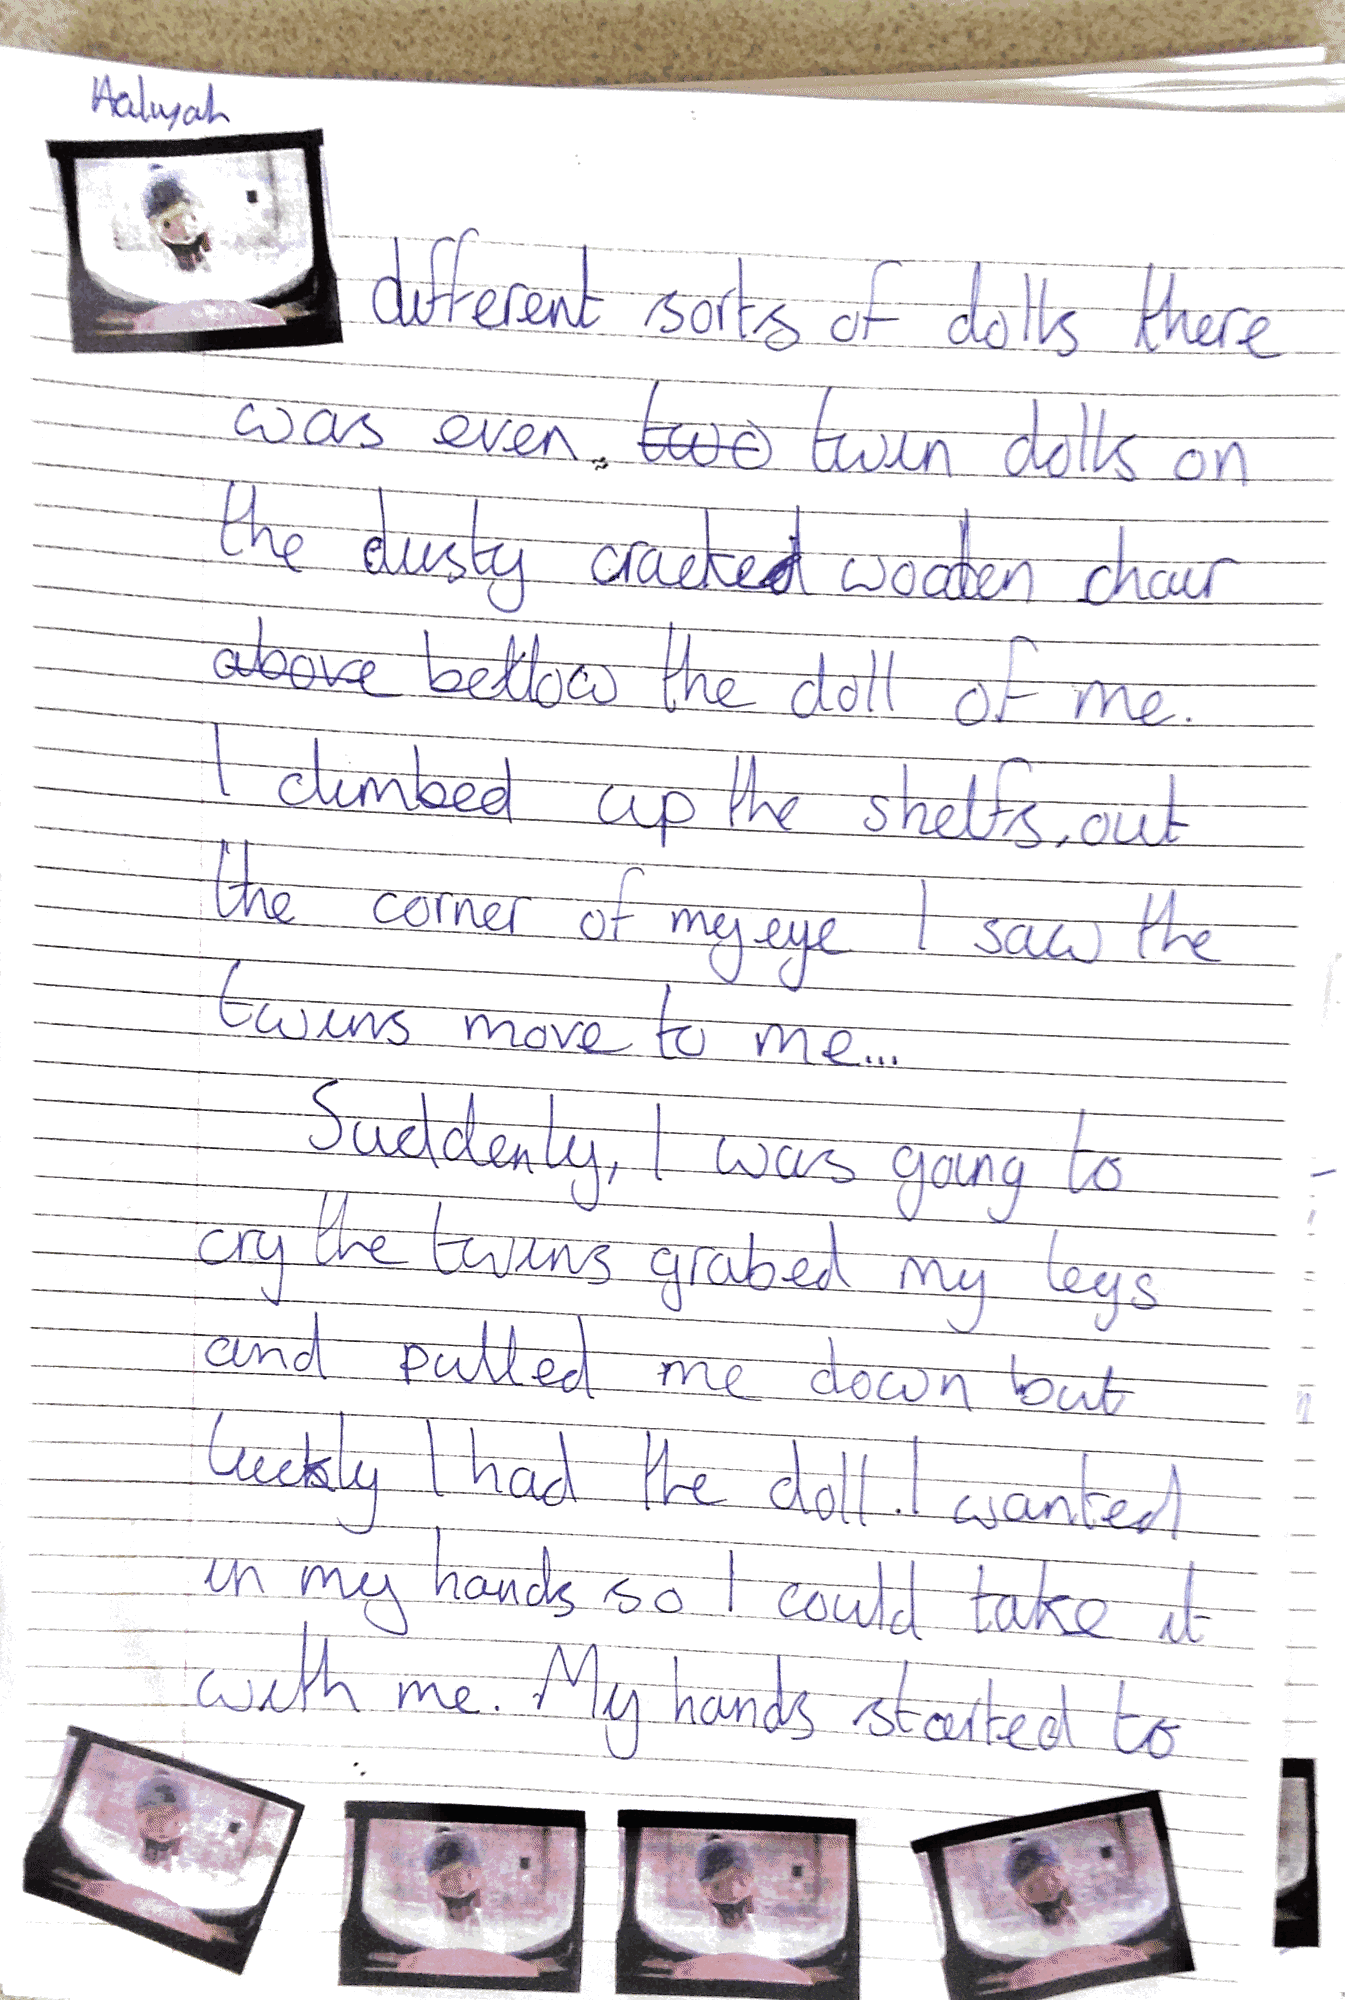 Aaliyah
different sorts of dolls there
was even. two twin dolls on
the dusty cracked wooden chair
above bellow the doll of me.
I climbed up the shelfs, out
the corner of my eye I saw the
twins move to me...
Suddenly, I was going to
cry the twins grabed my legs
and pulled me down but
luckly I had the doll. I wanted
in my hands so I could take it
with me. My hands started to